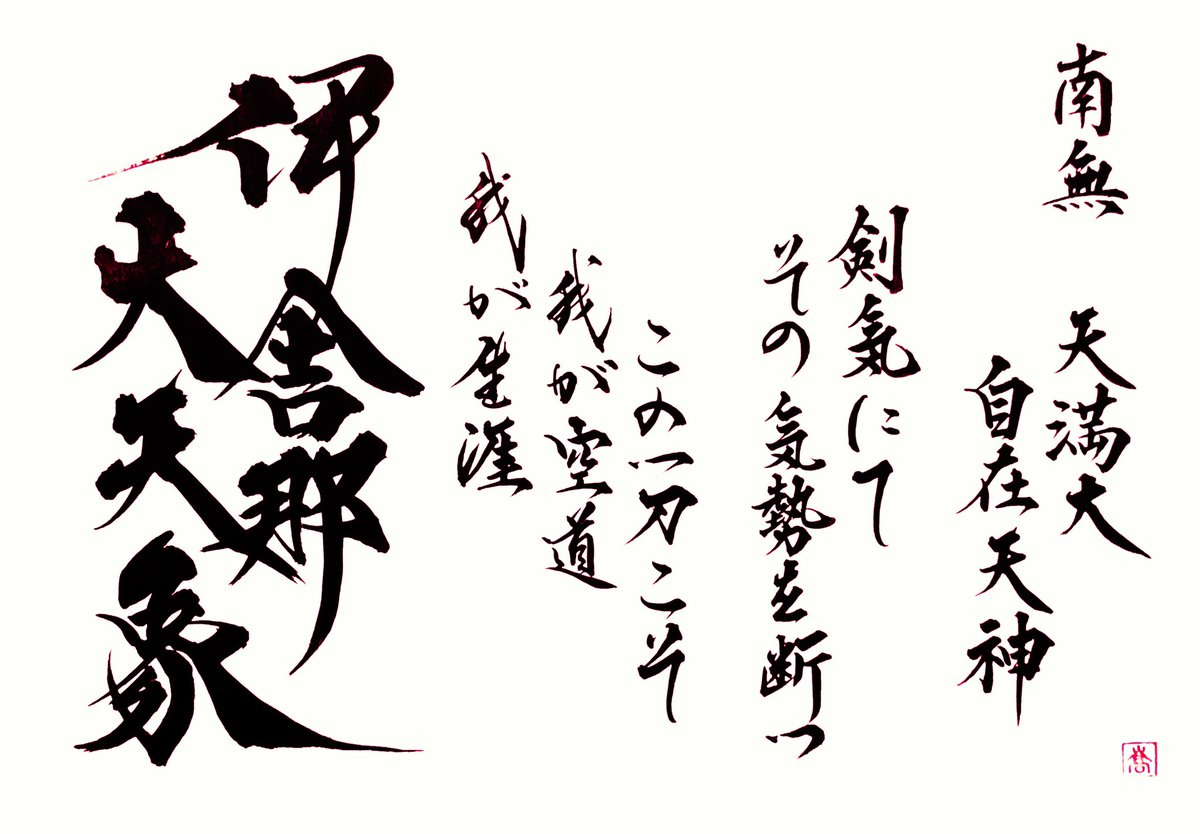 南無 天満大
自在天神
剣氣にて
その気勢を断つ
この一刀こそ
我が空道
我が生涯
伊舎那
大天象